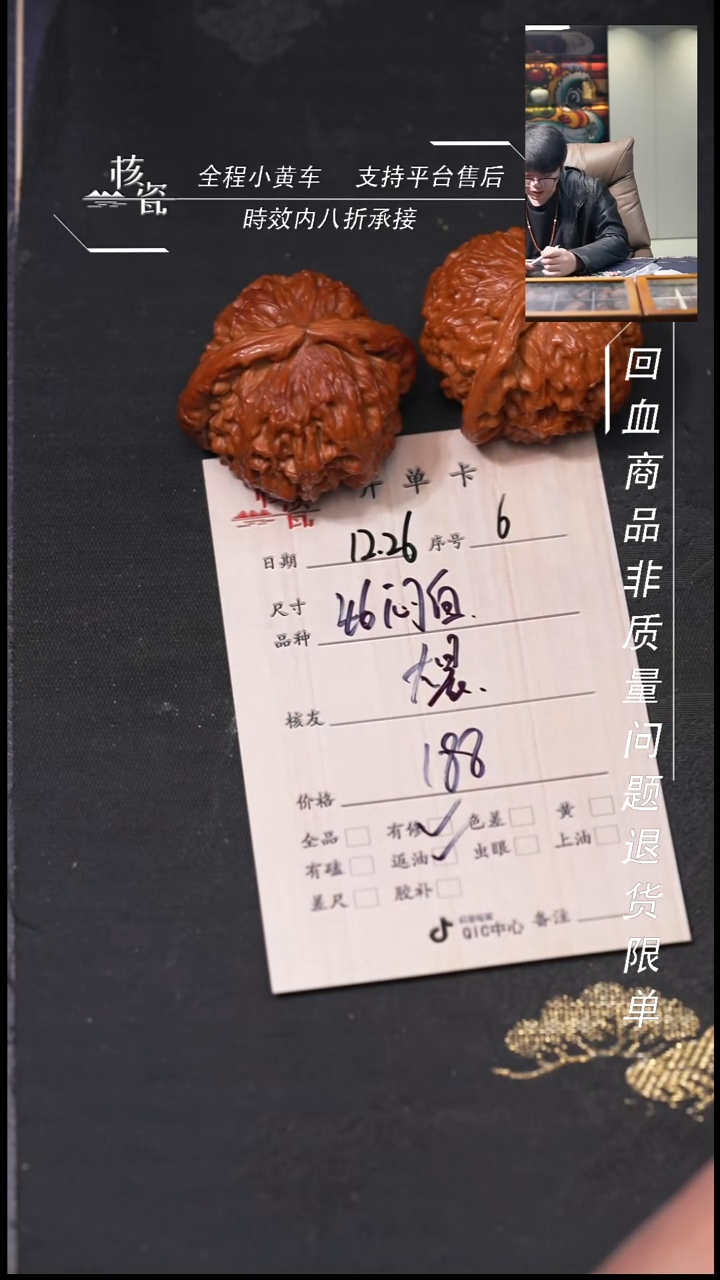 核瓷
全程小黄车 支持平台售后
時效内八折承接
回血商品非质量问题退货限单
开单卡
核瓷
日期 12.26 序号 6
尺寸
品种 46闷白.
核友
价格 188
全品 有修 色差 黄
有磕 返油 虫眼 上油
差尺 胶补
QIC中心 备注